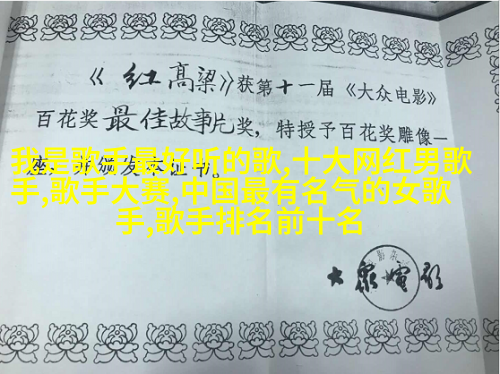 《红高粱》获第十一届《大众电影》
百花奖最佳故事片奖，特授予百花奖雕像一
座，并颁发本证书。
我是歌手最好听的歌,十大网红男歌
手,歌手大赛,中国最有名气的女歌
手,歌手排名前十名
大众电影